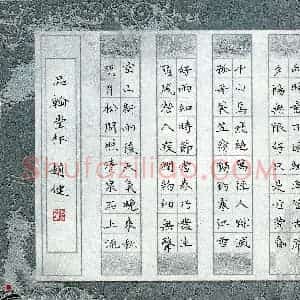 夕陽無限好
千山鳥飛絕萬徑人蹤滅
孤舟蓑笠翁獨釣寒江雪
好雨知時節當春乃發生
隨風潛入夜潤物細無聲
空山新雨後天氣晚來秋
明月松間照清泉石上流
品翰堂杯 胡健
Shufaziliao.com